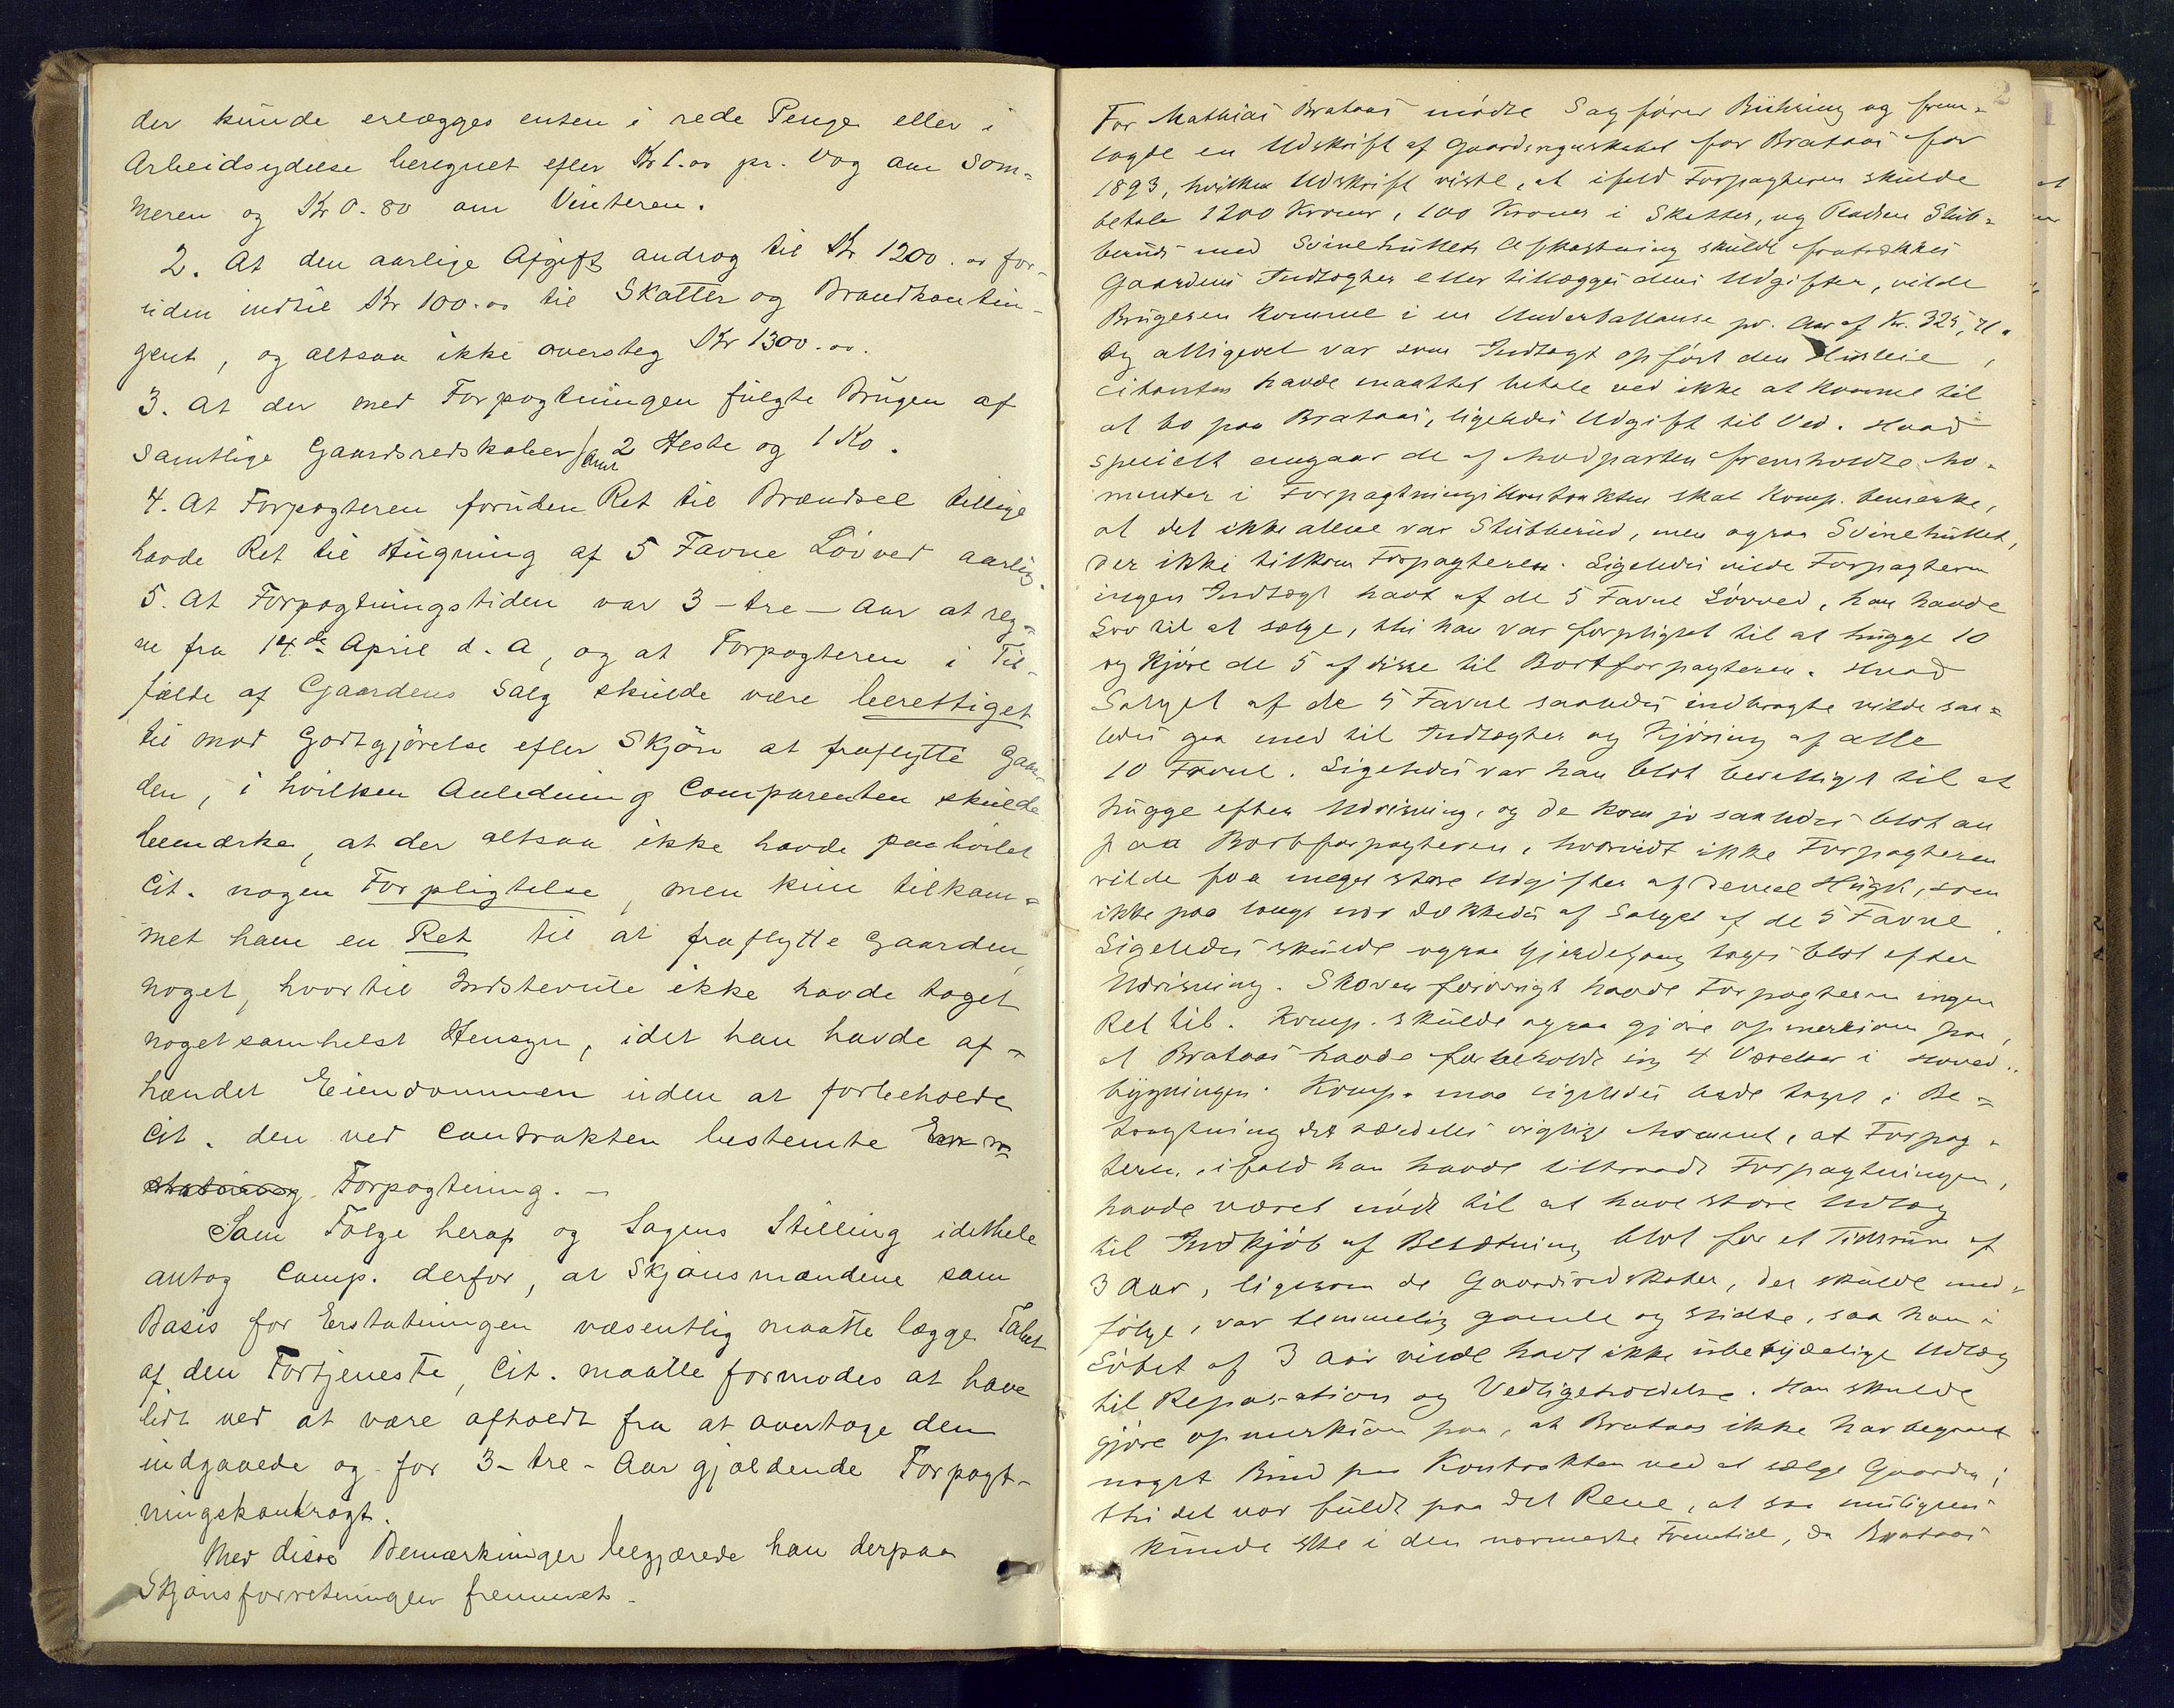 der kunde erlægges enten i rede Penge eller i
Arbeidsydelse beregnet efter Kr 1.00 pr. Dag om Som-
meren og Kr 0.80 om Vinteren.
2. At den aarlige Afgift androg til Kr 1200.00 for-
uden indtil Kr 100.00 til Skatter og Brandkontin-
gent, og altsaa ikke oversteg Kr 1300.00.
3. At der med Forpagtningen fulgte Brugen af
samtlige Gaardsredskaber samt 2 Heste og 1 Ko.
4. At Forpagteren foruden Ret til Brændsel tillige
havde Ret til Hugning af 5 Favne Løvved aarlig.
5. At Forpagtningstiden var 3 - tre - Aar at reg-
ne fra 14de April d. A, og at Forpagteren i Til-
fælde af Gaardens Salg skulde være berettiget
til mod Godtgjørelse efter Skjøn at fraflytte Gaar-
den, i hvilken Anledning Comparenten skulde
bemærke, at der altsaa ikke havde paahvilet
Cit. nogen Forpligtelse, men kun tilkom-
met ham en Ret til at fraflytte Gaarden,
noget, hvortil Indstevnte ikke havde taget
nogetsomhelst Hensyn, idet han havde af-
hændet Eiendommen uden at forbeholde
Cit. den ved Contrakten bestemte Er-
statning Forpagtning. -
Som Følge heraf og Sagens Stilling idethele
antog Comp. derfor, at Skjønsmændene som
Basis for Erstatningen væsentlig maatte lægge Tabet
af den Fortjeneste, Cit. maatte formodes at have
lidt ved at være afholdt fra at overtage den
indgaaede og for 3 - tre - Aar gjældende Forpagt-
ningskontragt.
Med disse Bemærkninger begjærede han derpaa
Skjønsforretningen fremmet -
2
For Mathias Brataas mødte Sagfører Bühring og frem-
lagde en Udskrift af Gaardsregnskabet for Brataas for
1893, hvilken Udskrift viste, at ifald Forpagteren skulde
betale 1200 Kroner, 100 Kroner i Skatter, og Pladsen Stub-
beruds med Svinehullets Afkastning skulde fratrækkes
Gaardens Indtægter eller tillægges dens Udgifter, vilde
Brugeren komme i en Underballanse pr. Aar af Kr. 325,
og alligevel var som Indtægt opført den Husleie,
citanten havde maattet betale ved ikke at komme til
at bo paa Brataas, ligeledes Udgift til Ved. Hvad
specielt angaar de af Modparten fremholdte Mo-
menter i Forpagtningskontrakten skal Komp. bemerke,
at det ikke alene var Stubberud, men ogsaa Svinehullet,
der ikke tilkom Forpagteren. Ligeledes vilde Forpagteren
ingen Indtægt havt af de 5 Favne Løvved, han havde
Lov til at sælge, thi han var forpligtet til at hugge 10
og kjøre de 5 af disse til Bortforpagteren. Hvad
Salget af de 5 Favne saaledes indbragte vilde saa-
ledes gaa med til Indtægter og Kjøring af alle
10 Favne. Ligeledes var han blot berettiget til at
hugge efter Udvisning, og de kom jo saaledes blot an
paa Bortforpagteren, hvorvidt ikke Forpagteren
vilde faa meget store Udgifter af denne Hugst, som
ikke paa langt nær dækkedes af Salget af de 5 Favne.
Ligeledes skulde ogsaa Gjærdefang tages blot efter
Udvisning. Skoven forøvrigt havde Forpagteren ingen
Ret til. Komp. skulde ogsaa gjøre opmerksom paa,
at Brataas havde forbeholdt sig 4 Værelser i Hoved-
bygningen. Komp. maa ligeledes bede taget i Be-
tragtning det særdeles vigtige Moment, at Forpag-
teren, ifald han havde tiltraadt Forpagtningen,
havde været nødt til at have store Udlæg
til Indkjøb af Besætning blot for et Tidsrum af
3 Aar, ligesom de Gaardsredskaber, der skulde med-
følge, var temmelig gamle og slidte, saa han i
Løbet af 3 Aar vilde havt ikke ubetydelige Udlæg
til Reparation og Vedligeholdelse. Han skulde
gjøre opmerksom paa, at Brataas ikke har begaaet
noget Brud paa Kontrakten ved at sælge Gaarden;
thi det var fuldt paa det Rene, at saa muligens
kunde ske i den nærmeste Fremtid, da Brataas